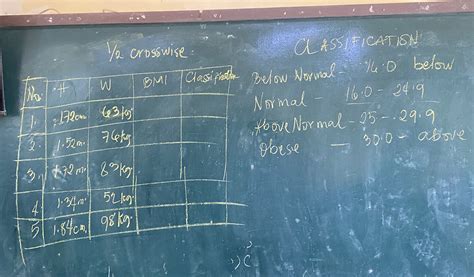 1/2 crosswise
No. H W BMI Classification
1. 172cm 63kg
2. 1.52m 76kg
3. 1.72m 83kg
4 1.34m 52kg
5 1.84cm 98kg
CLASSIFICATION
Below Normal - 16.0 below
Normal - 16.0 - 24.9
Above Normal - 25 - 29.9
Obese - 30.0 - above